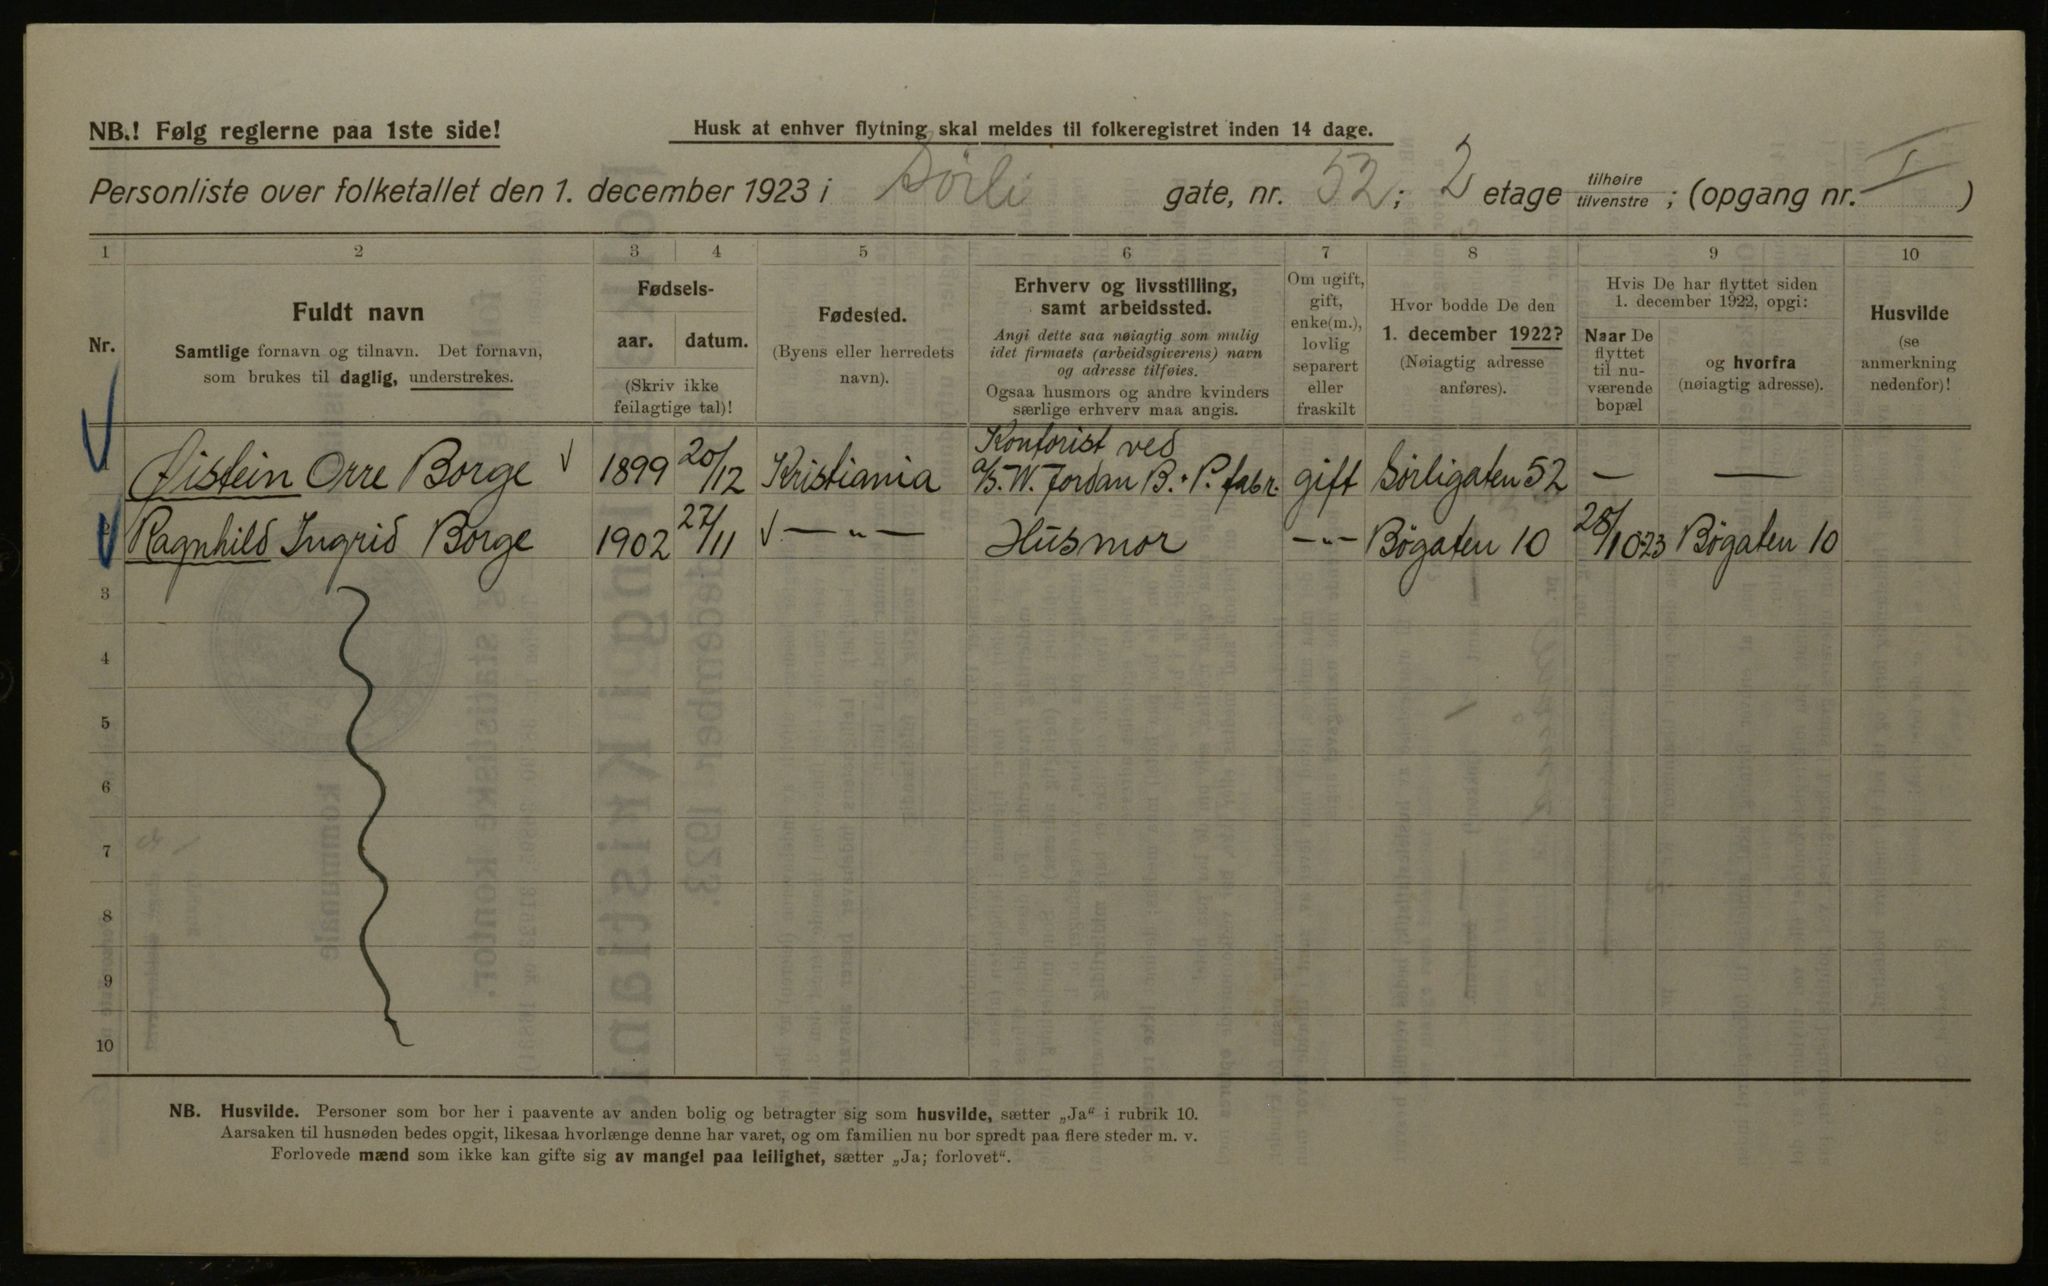 NB.! Følg reglerne paa 1ste side!
Husk at enhver flytning skal meldes til folkeregistret inden 14 dage.
Personliste over folketallet den 1. december 1923 i Sörli gate, nr. 52; 2 etage tilhøire/tilvenstre; (opgang nr. I)
1 2 3 4 5 6 7 8 9 10
Nr.
Fuldt navn
Samtlige fornavn og tilnavn. Det fornavn,
som brukes til daglig, understrekes.
Fødsels-
aar. datum.
(Skriv ikke
feilagtige tal)!
Fødested.
(Byens eller herredets
navn).
Erhverv og livsstilling,
samt arbeidssted.
Angi dette saa nøiagtig som mulig
idet firmaets (arbeidsgiverens) navn
og adresse tilføies.
Ogsaa husmors og andre kvinders
særlige erhverv maa angis.
Om ugift,
gift,
enke(m.),
lovlig
separert
eller
fraskilt
Hvor bodde De den
1. december 1922?
(Nøiagtig adresse
anføres).
Hvis De har flyttet siden
1. december 1922, opgi:
Naar De
flyttet
til nu-
værende
bopæl
og hvorfra
(nøiagtig adresse).
Husvilde
(se
anmerkning
nedenfor)!
1 Øistein Orre Borge √ 1899 20/12 Kristiania Kontorist ved
a/s. W. Jordan B. & P. fabr. gift Sörligaten 52 — —
2 Ragnhild Ingrid Borge 1902 27/11 √ —„— Husmor —„— Bøgaten 10 28/10-23 Bøgaten 10
3
4
5
6
7
8
9
10
NB. Husvilde. Personer som bor her i paavente av anden bolig og betragter sig som husvilde, sætter „Ja“ i rubrik 10.
Aarsaken til husnøden bedes opgit, likesaa hvorlænge denne har varet, og om familien nu bor spredt paa flere steder m. v.
Forlovede mænd som ikke kan gifte sig av mangel paa leilighet, sætter „Ja; forlovet“.